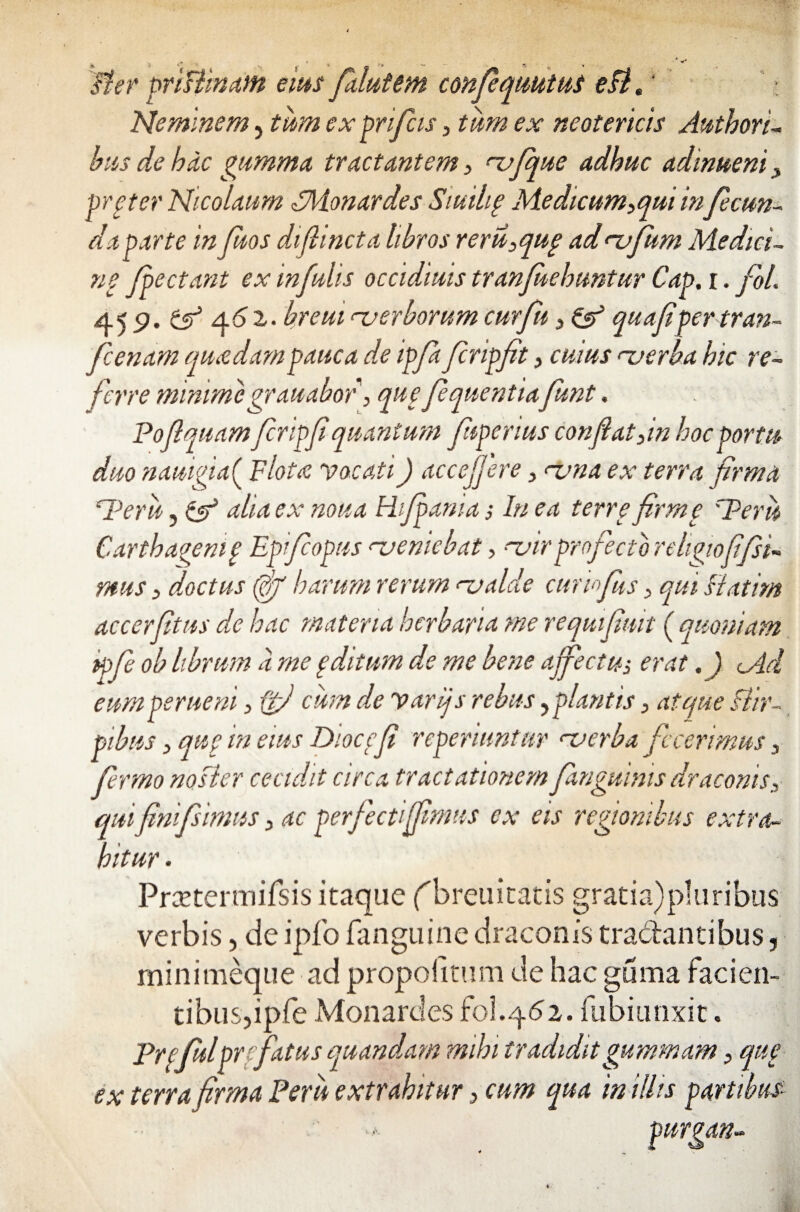 ster pristinam eius salutem consequutus est.
Neminem, tùm ex priscis, tùm ex neotericis Authori-
bus de hàc gumma tractantem, vsque adhuc adinueni,
pręter Nicolaum Monardes Siuilię Medicum,qui in secun-
da parte in suos distincta libros rerũ,quę ad vsum Medici-
nę spectant ex insulis occidiuis transuehuntur Cap. 1. fol.
459. & 462. breui verborum cursu, & quasi per tran-
scenam quædam pauca de ipsa scripsit, cuius verba hic re-
ferre minimè grauabor, quę sequentia sunt.
Postquam scripsi quantum superius constat,in hoc portu
duo nauigia( Flotæ vocati) accessere, vna ex terra firma
Perù, & alia ex noua Hispania; In ea terrę firmę Perù
Carthagenię Episcopus veniebat, vir profectò religiosissi-
mus, doctus & harum rerum valde curiosus, qui statim
accersitus de hac materia herbaria me requisiuit (quoniam
ipse ob librum à me ęditum de me bene affectus erat.) Ad
eum perueni, & cùm de varijs rebus, plantis, atque stir-
pibus, quę in eius Diocęsi reperiuntur verba fecerimus,
sermo noster cecidit circa tractationem sanguinis draconis,
qui finissimus, ac perfectissimus ex eis regionibus extra-
hitur.
Prætermissis itaque (breuitatis gratia)pluribus
verbis, de ipso sanguine draconis tractantibus,
minimèque ad propositum de hac gũma facien-
tibus,ipse Monardes fol.462. subiunxit.
Pręsul pręfatus quandam mihi tradidit gummam, quę
ex terra firma Perù extrahitur, cum qua in illis partibus
purgan-